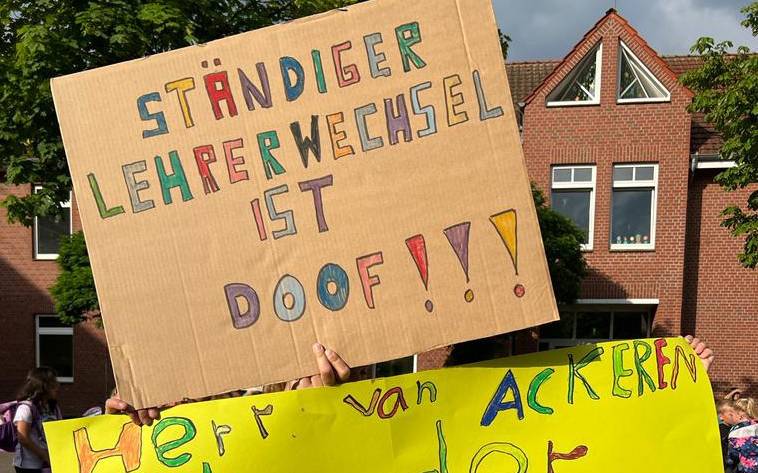 STÄNDIGER
LEHRERWECHSEL
IST
DOOF!!!
Herr van ACKEREN